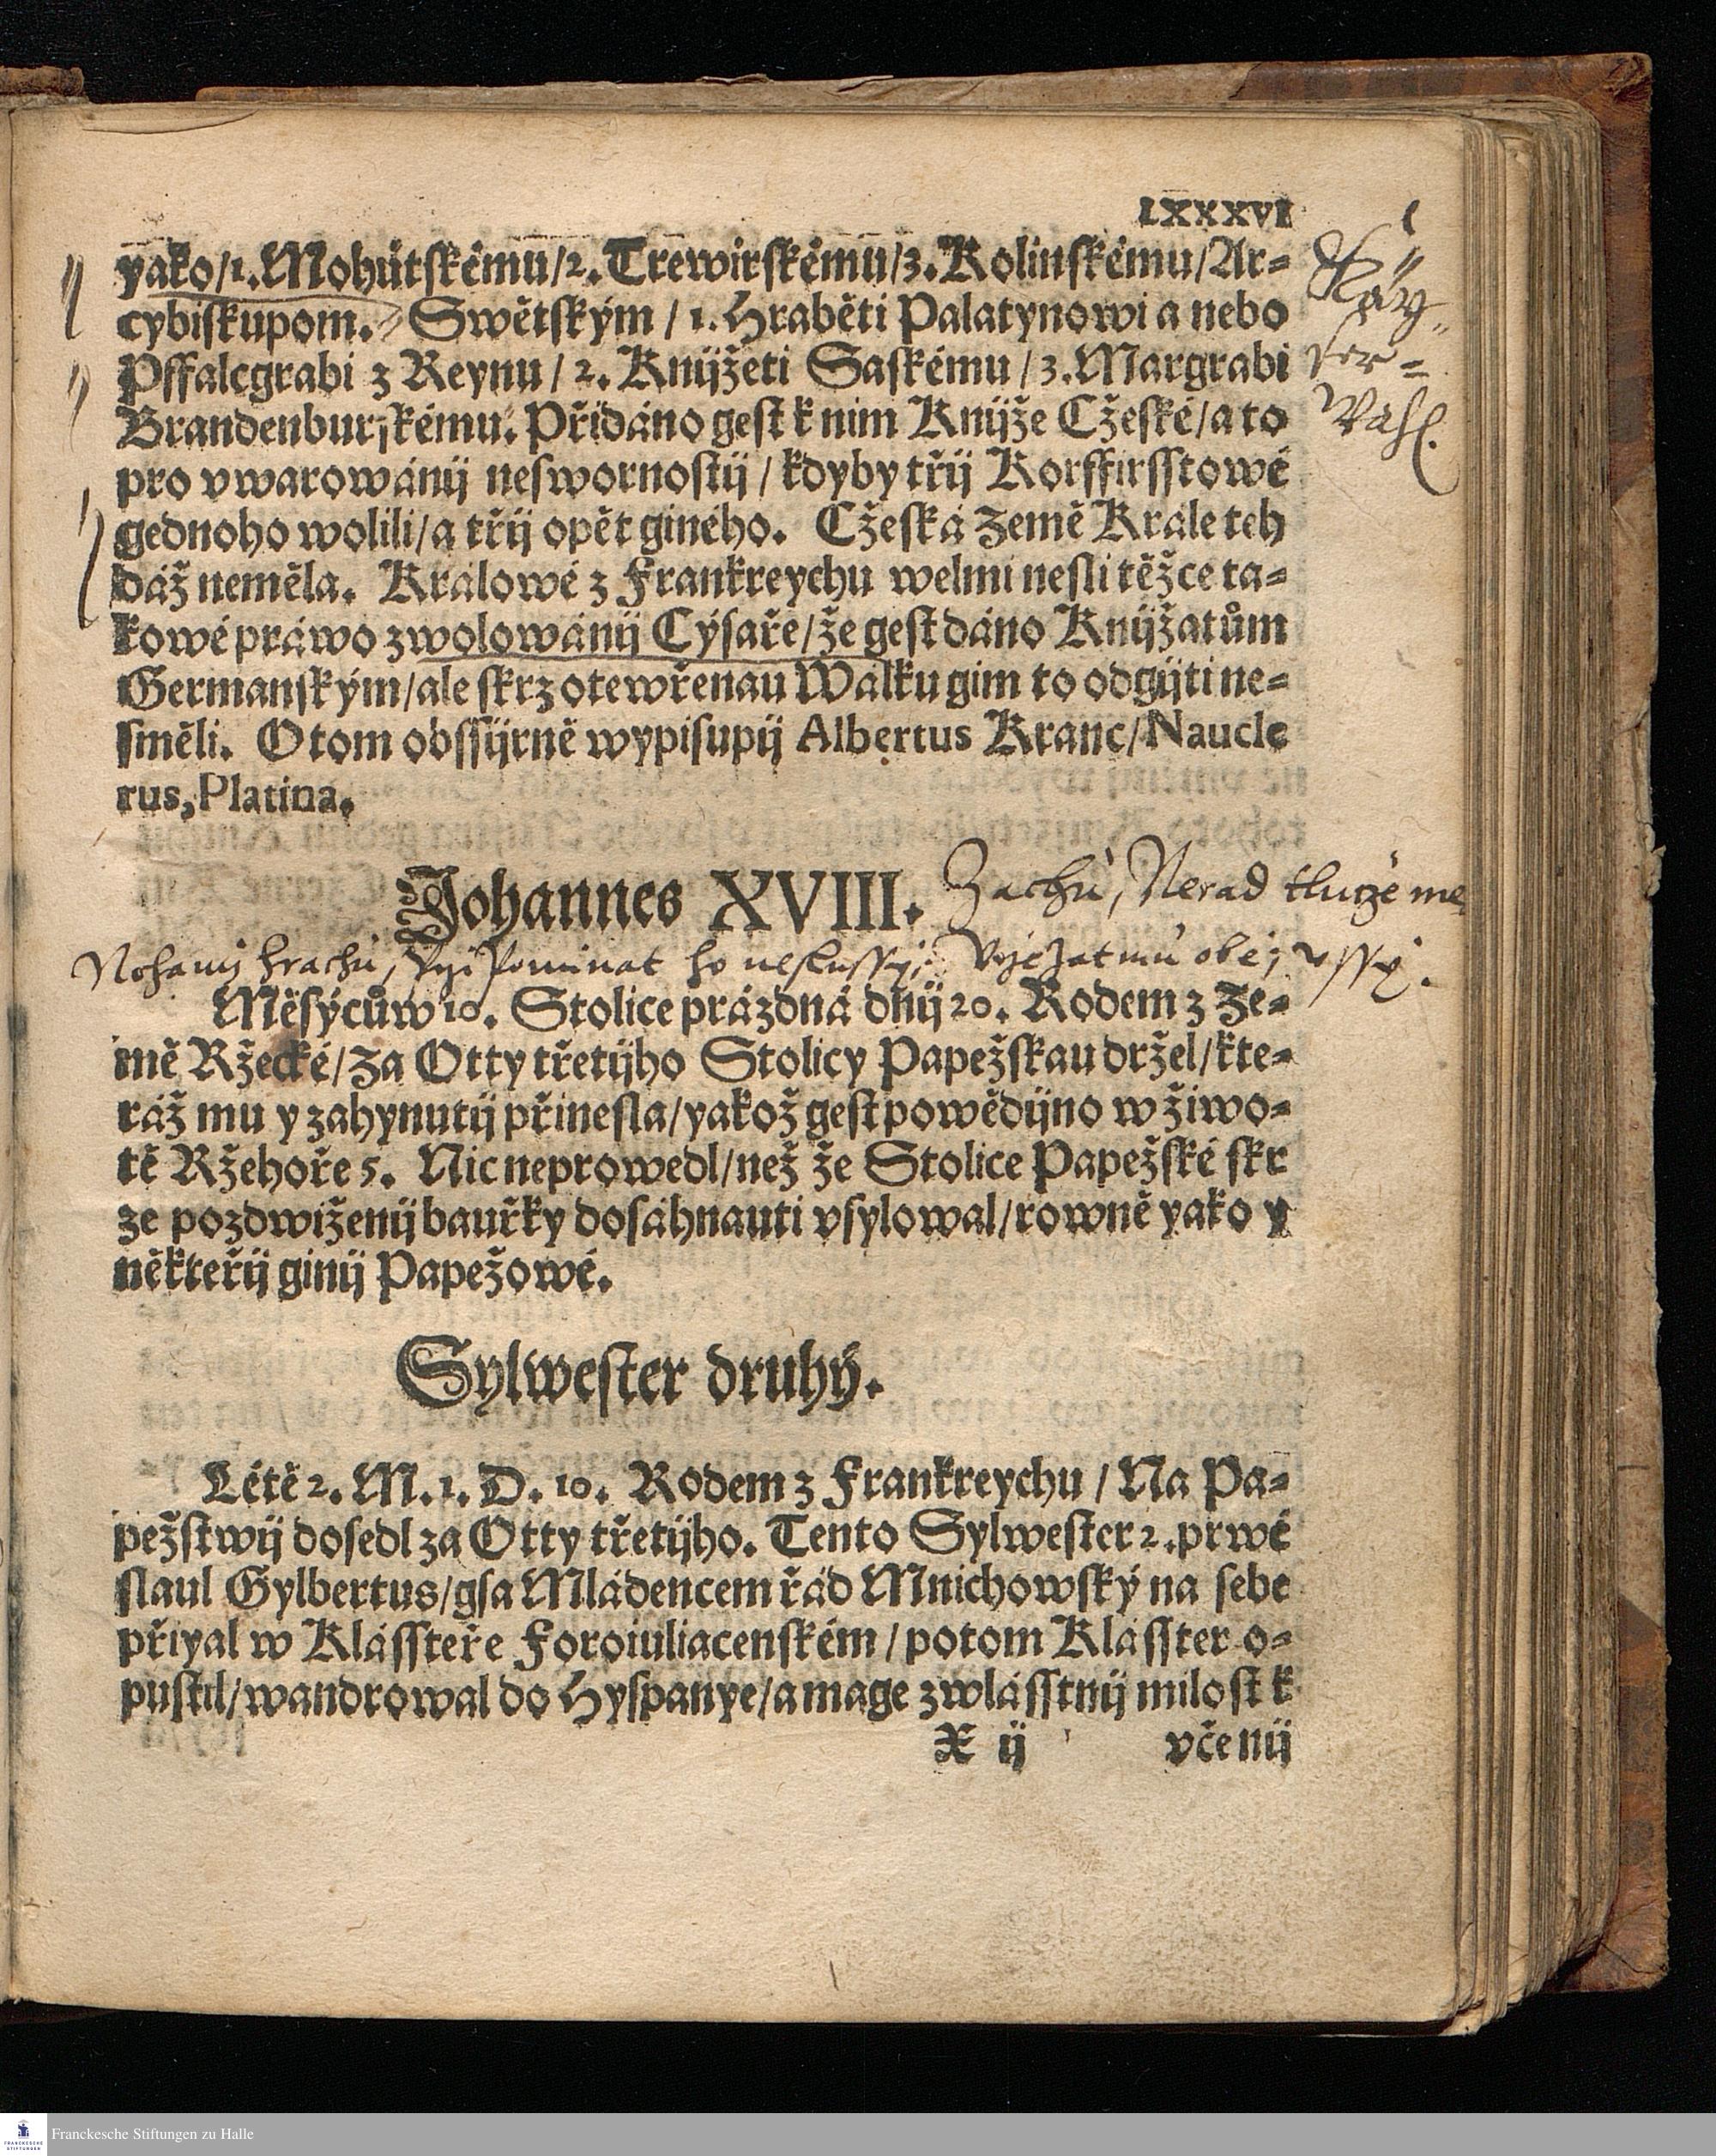 LXXXVI
yako/1. Mohútſkému/2. Trewirſkému/3. Kolinſkému/Ar-
cybiſkupom. Swětſkým / 1. Hraběti Palatynowi a nebo
Pffalcgrabi z Reynu / 2. Knijžeti Saſkému / 3. Margrabi
Brandenburſkému. Přidáno geſt k nim Knijže Cžeſké/a to
pro vwarowánij neſwornoſtij / kdyby třij Korffirſſtowé
gednoho wolili/a třij opět giného. Cžeſká Země Krále teh
dáž neměla. Králowé z Frankreychu welmi neſli těžce ta-
kowé práwo zwolowánij Cýſaře/že geſt dáno Knijžatům
Germanſkým/ale ſkrz otewřenau Wálku gim to odgijti ne-
ſměli. O tom obſſijrně wypiſupij Albertus Kranc/Naucle
rus, Platina.
Käy-
ſer-
Wahl.
Johannes XVIII. Zachu, Nerad
Nohamij hrachu, ho neſluſſij,
Měſýcůw 10. Stolice prázdná dnij 20. Rodem z Ze-
mě Ržecké/Za Otty třetijho Stolicy Papežſkau držel/kte-
ráž mu y zahynutij přineſla/yakož geſt powědijno w žiwo-
tě Ržehoře 5. Nic neprowedl/než že Stolice Papežſké ſkr
ze pozdwiženij bauřky doſáhnauti vſylowal/rowně yako y
někteřij ginij Papežowé.
Sylweſter druhý.
Létě 2. M. 1. D. 10. Rodem z Frankreychu / Na Pa-
pežſtwij doſedl za Otty třetijho. Tento Sylweſter 2. prwé
ſlaul Gylbertus/gſa Mládencem řád Mnichowſký na ſebe
přiyal w Kláſſteře Foroiuliacenſkém / potom Kláſſter o-
puſtil/wandrowal do Hyſpanye/a mage zwláſſtnij miloſt k
X ij včenij
Franckesche Stiftungen zu Halle